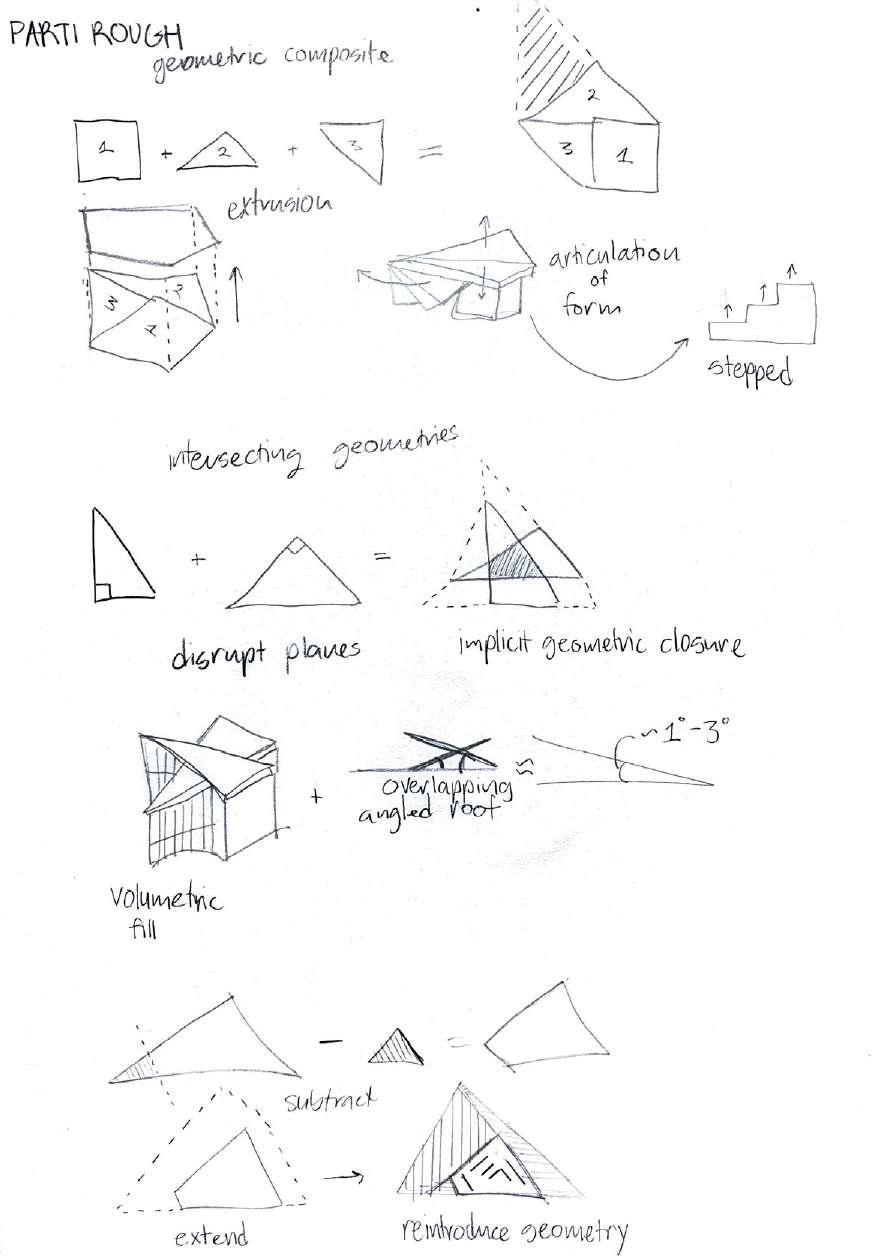 PARTI ROUGH
geometric composite
1 + 2 + 3 =
2
3 1
extrusion
3 2
1
articulation
of
form
stepped
intersecting geometries
+ =
disrupt planes
implicit geometric closure
+ ≈ ~1°-3°
overlapping
angled roof
volumetric
fill
- =
subtract
extend
reintroduce geometry